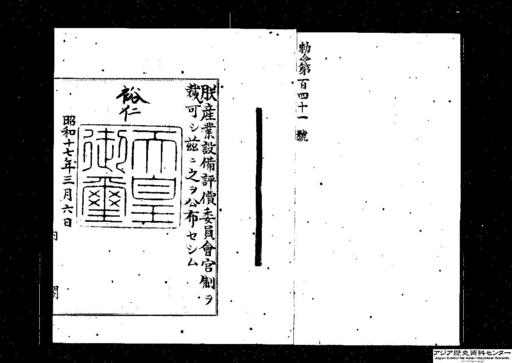 勅令第百四十一號
朕産業設備評價委員會官制ヲ
裁可シ茲ニ之ヲ公布セシム
裕仁
天皇御璽
昭和十七年三月六日
内閣
アジア歴史資料センター
Japan Center for Asian Historical Records